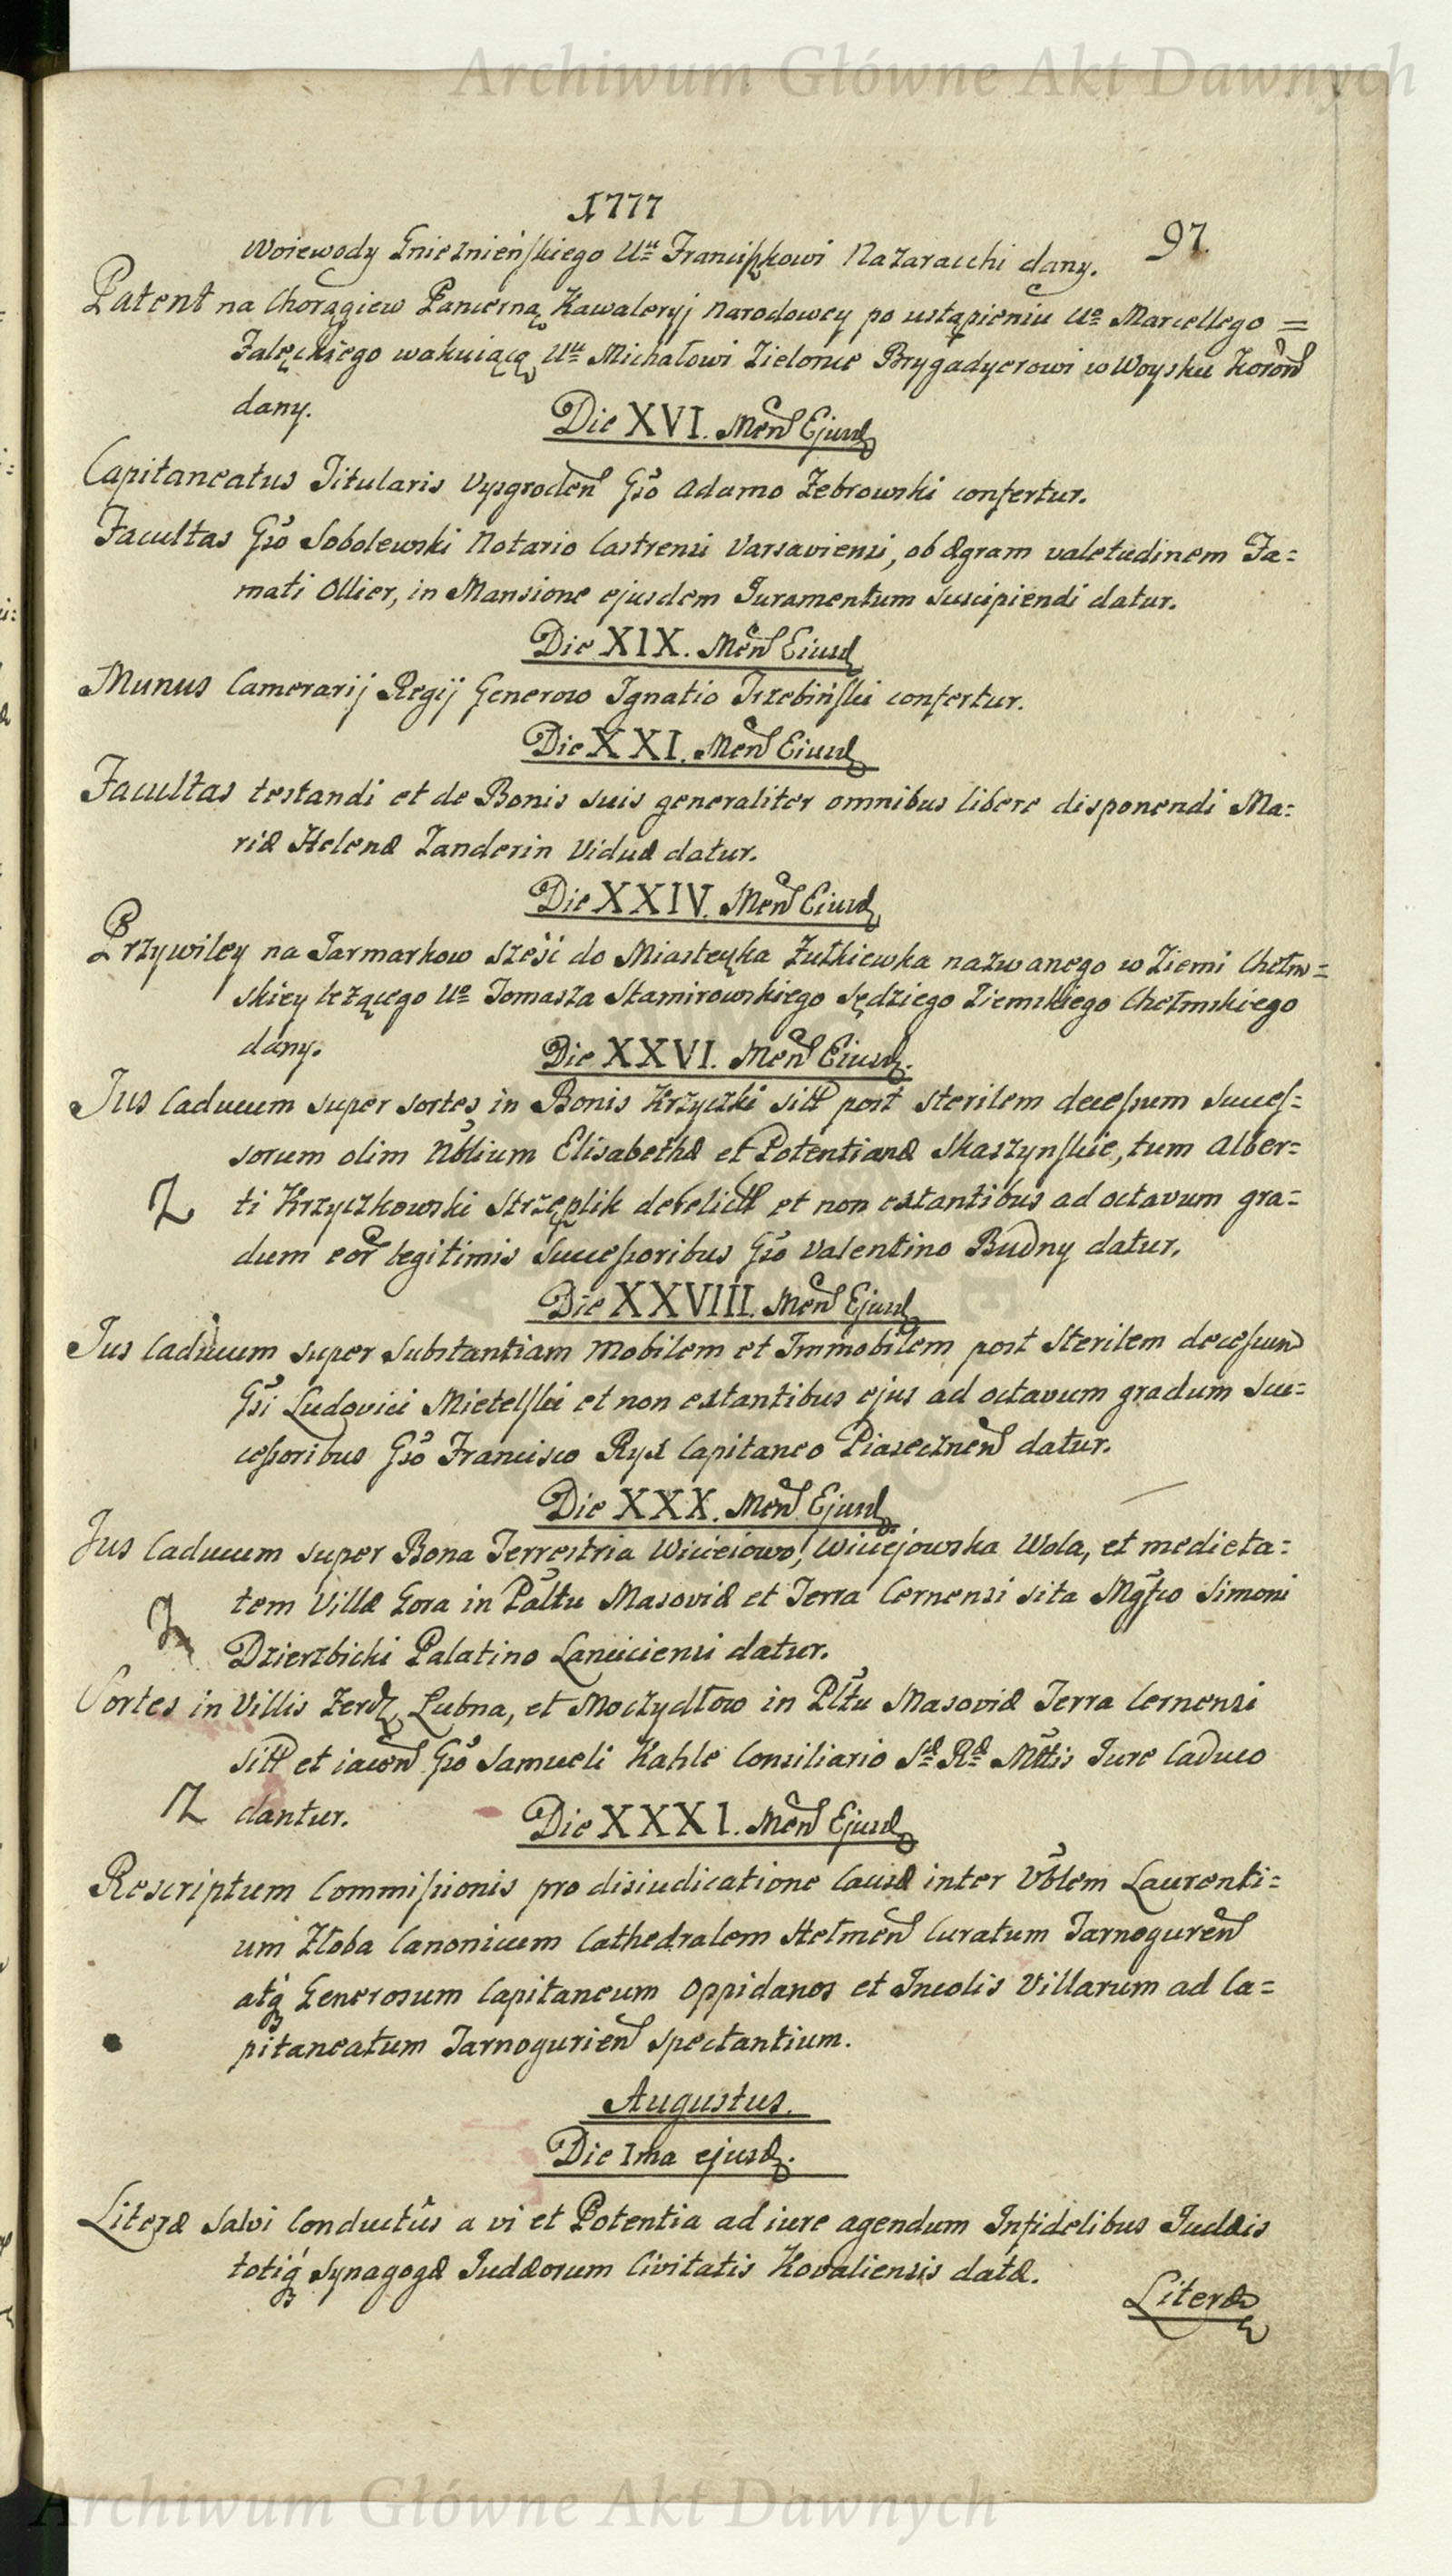 Archiwum Główne Akt Dawnych
1777
97.
Woiewody Gnieznieńskiego Uu Franciszkowi Nazaracchi dany.
Patent na Chorągiew Pancerną Kawaleryj Narodowey po ustąpieniu Uo Marcellego =
Załęckiego wakuiącą Uu Michałowi Zielonce Brygadyerowi w Woysku Koron
dany.
Die XVI. Men Ejusd
Capitaneatus Titularis Vysgroden Gso Adamo Zebrowski confertur.
Facultas Gso Sobolewski Notario Castrensi Varsaviensi, ob ægram valetudinem Fa=
mati Ollier, in Mansione ejusdem Juramentum suscipiendi datur.
Die XIX. Men Eiusd
Munus Camerarij Regij Generoso Ignatio Trzebiński confertur.
Die XXI. Men Eiusd
Facultas testandi et de Bonis suis generaliter omnibus libere disponendi Ma=
riæ Helenæ Zanderin Viduæ datur.
Die XXIV. Men Eiusd
Przywiley na Jarmarkow sześć do Miasteczka Żułkiewka nazwanego w Ziemi Chełm=
skiey leżącego Uo Tomasza Stamirowskiego Sędziego Ziemskiego Chełmskiego
dany.
Die XXVI. Men Eiusd.
Jus Caducum super sortes in Bonis Krzyczki sitt post sterilem decessum succes=
sorum olim Nblium Elisabethæ et Potentianæ Skaszynskie, tum Alber=
ti Krzyczkowski derelict et non extantibus ad octavum gra=
dum eor legitimis Successoribus Gso Valentino Budny datur.
Die XXVIII. Men Ejusd
Jus Caducum super substantiam Mobilem et Immobilem post sterilem decessum
Gsi Ludovici Mietelski et non extantibus ejus ad octavum gradum suc=
cessoribus Gso Francisco Ryx Capitaneo Piaseczнen datur.
Die XXX. Men Ejusd
Jus Caducum super Bona Terrestria Wicieiowo, Wiciejowska Wola, et medieta=
tem Villæ Gora in Paltu Masoviæ et Terra Cernensi sita Mgfco Simoni
Dzierzbicki Palatino Lanciciensi datur.
Sortes in Villis Lubna, et Moczydłow in Pltu Masoviæ Terra Cernensi
sitt et iacen Gso Samueli Kahle Consiliario Sæ Ræ Mttis Jure Caduco
dantur.
Die XXXI. Men Ejusd
Rescriptum Commissionis pro disiudicatione Causæ inter Vblem Laurenti=
um Złoba Canonicum Cathedralem Helmen Curatum Tarnoguren
atq Generosum Capitaneum Oppidanos et Incolis Villarum ad Ca=
pitaneatum Tarnogurien spectantium.
Augustus.
Die 1ma ejusd.
Literæ Salvi Conductûs a vi et Potentia ad iure agendum Infidelibus Judæis
totiq Synagogæ Judæorum Civitatis Kovaliensis datæ.
Literæ
Archiwum Główne Akt Dawnych